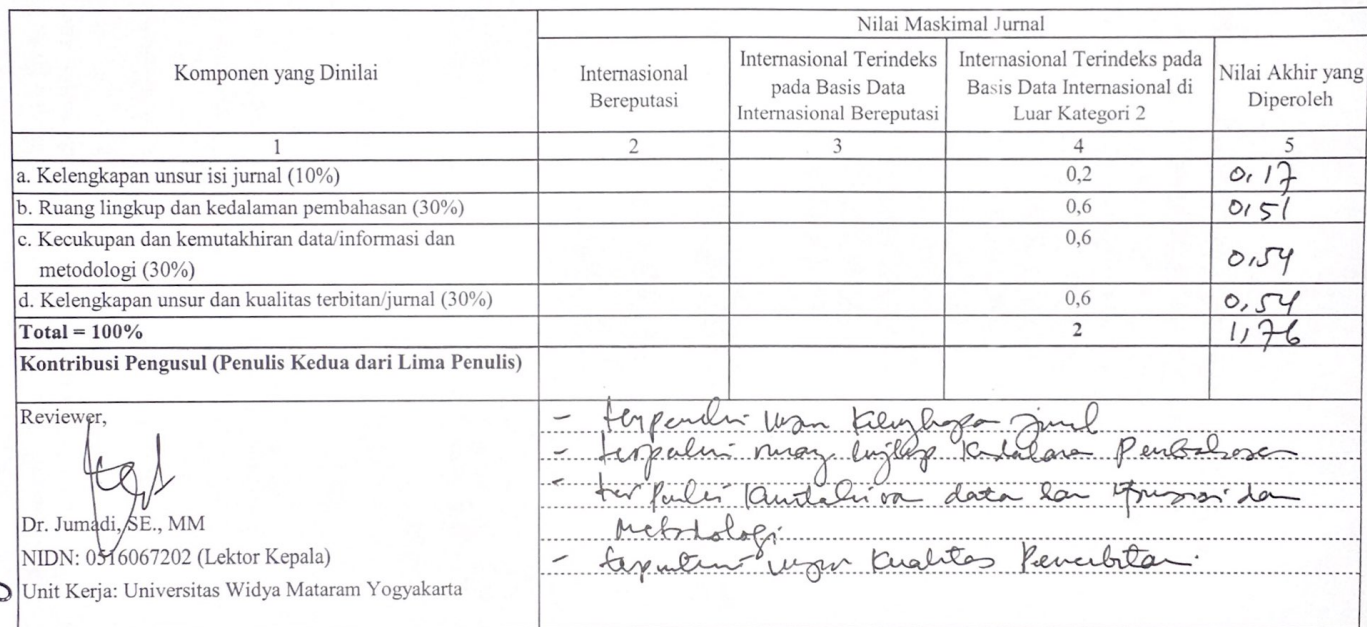 Komponen yang Dinilai
Nilai Maskimal Jurnal
Internasional Bereputasi
Internasional Terindeks pada Basis Data Internasional Bereputasi
Internasional Terindeks pada Basis Data Internasional di Luar Kategori 2
Nilai Akhir yang Diperoleh
1 2 3 4 5
a. Kelengkapan unsur isi jurnal (10%) 0,2 0,17
b. Ruang lingkup dan kedalaman pembahasan (30%) 0,6 0,51
c. Kecukupan dan kemutakhiran data/informasi dan
metodologi (30%) 0,6 0,54
d. Kelengkapan unsur dan kualitas terbitan/jurnal (30%) 0,6 0,54
Total = 100% 2 1,76
Kontribusi Pengusul (Penulis Kedua dari Lima Penulis)
Reviewer,
Dr. Jumadi, SE., MM
NIDN: 0516067202 (Lektor Kepala)
Unit Kerja: Universitas Widya Mataram Yogyakarta
-
-
- data dan
Metodologi
- Kualitas